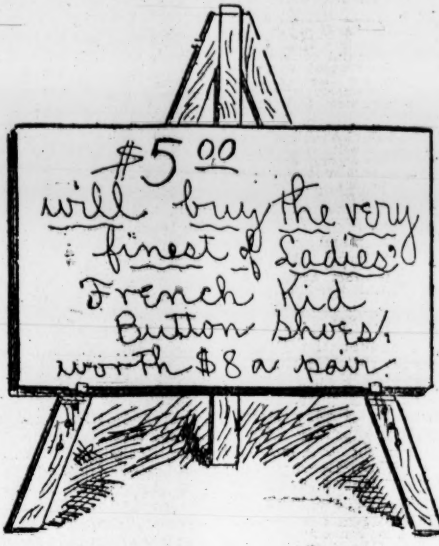 $5 00
will buy the very
finest of Ladies'
French Kid
Button Shoes,
worth $8 a pair.